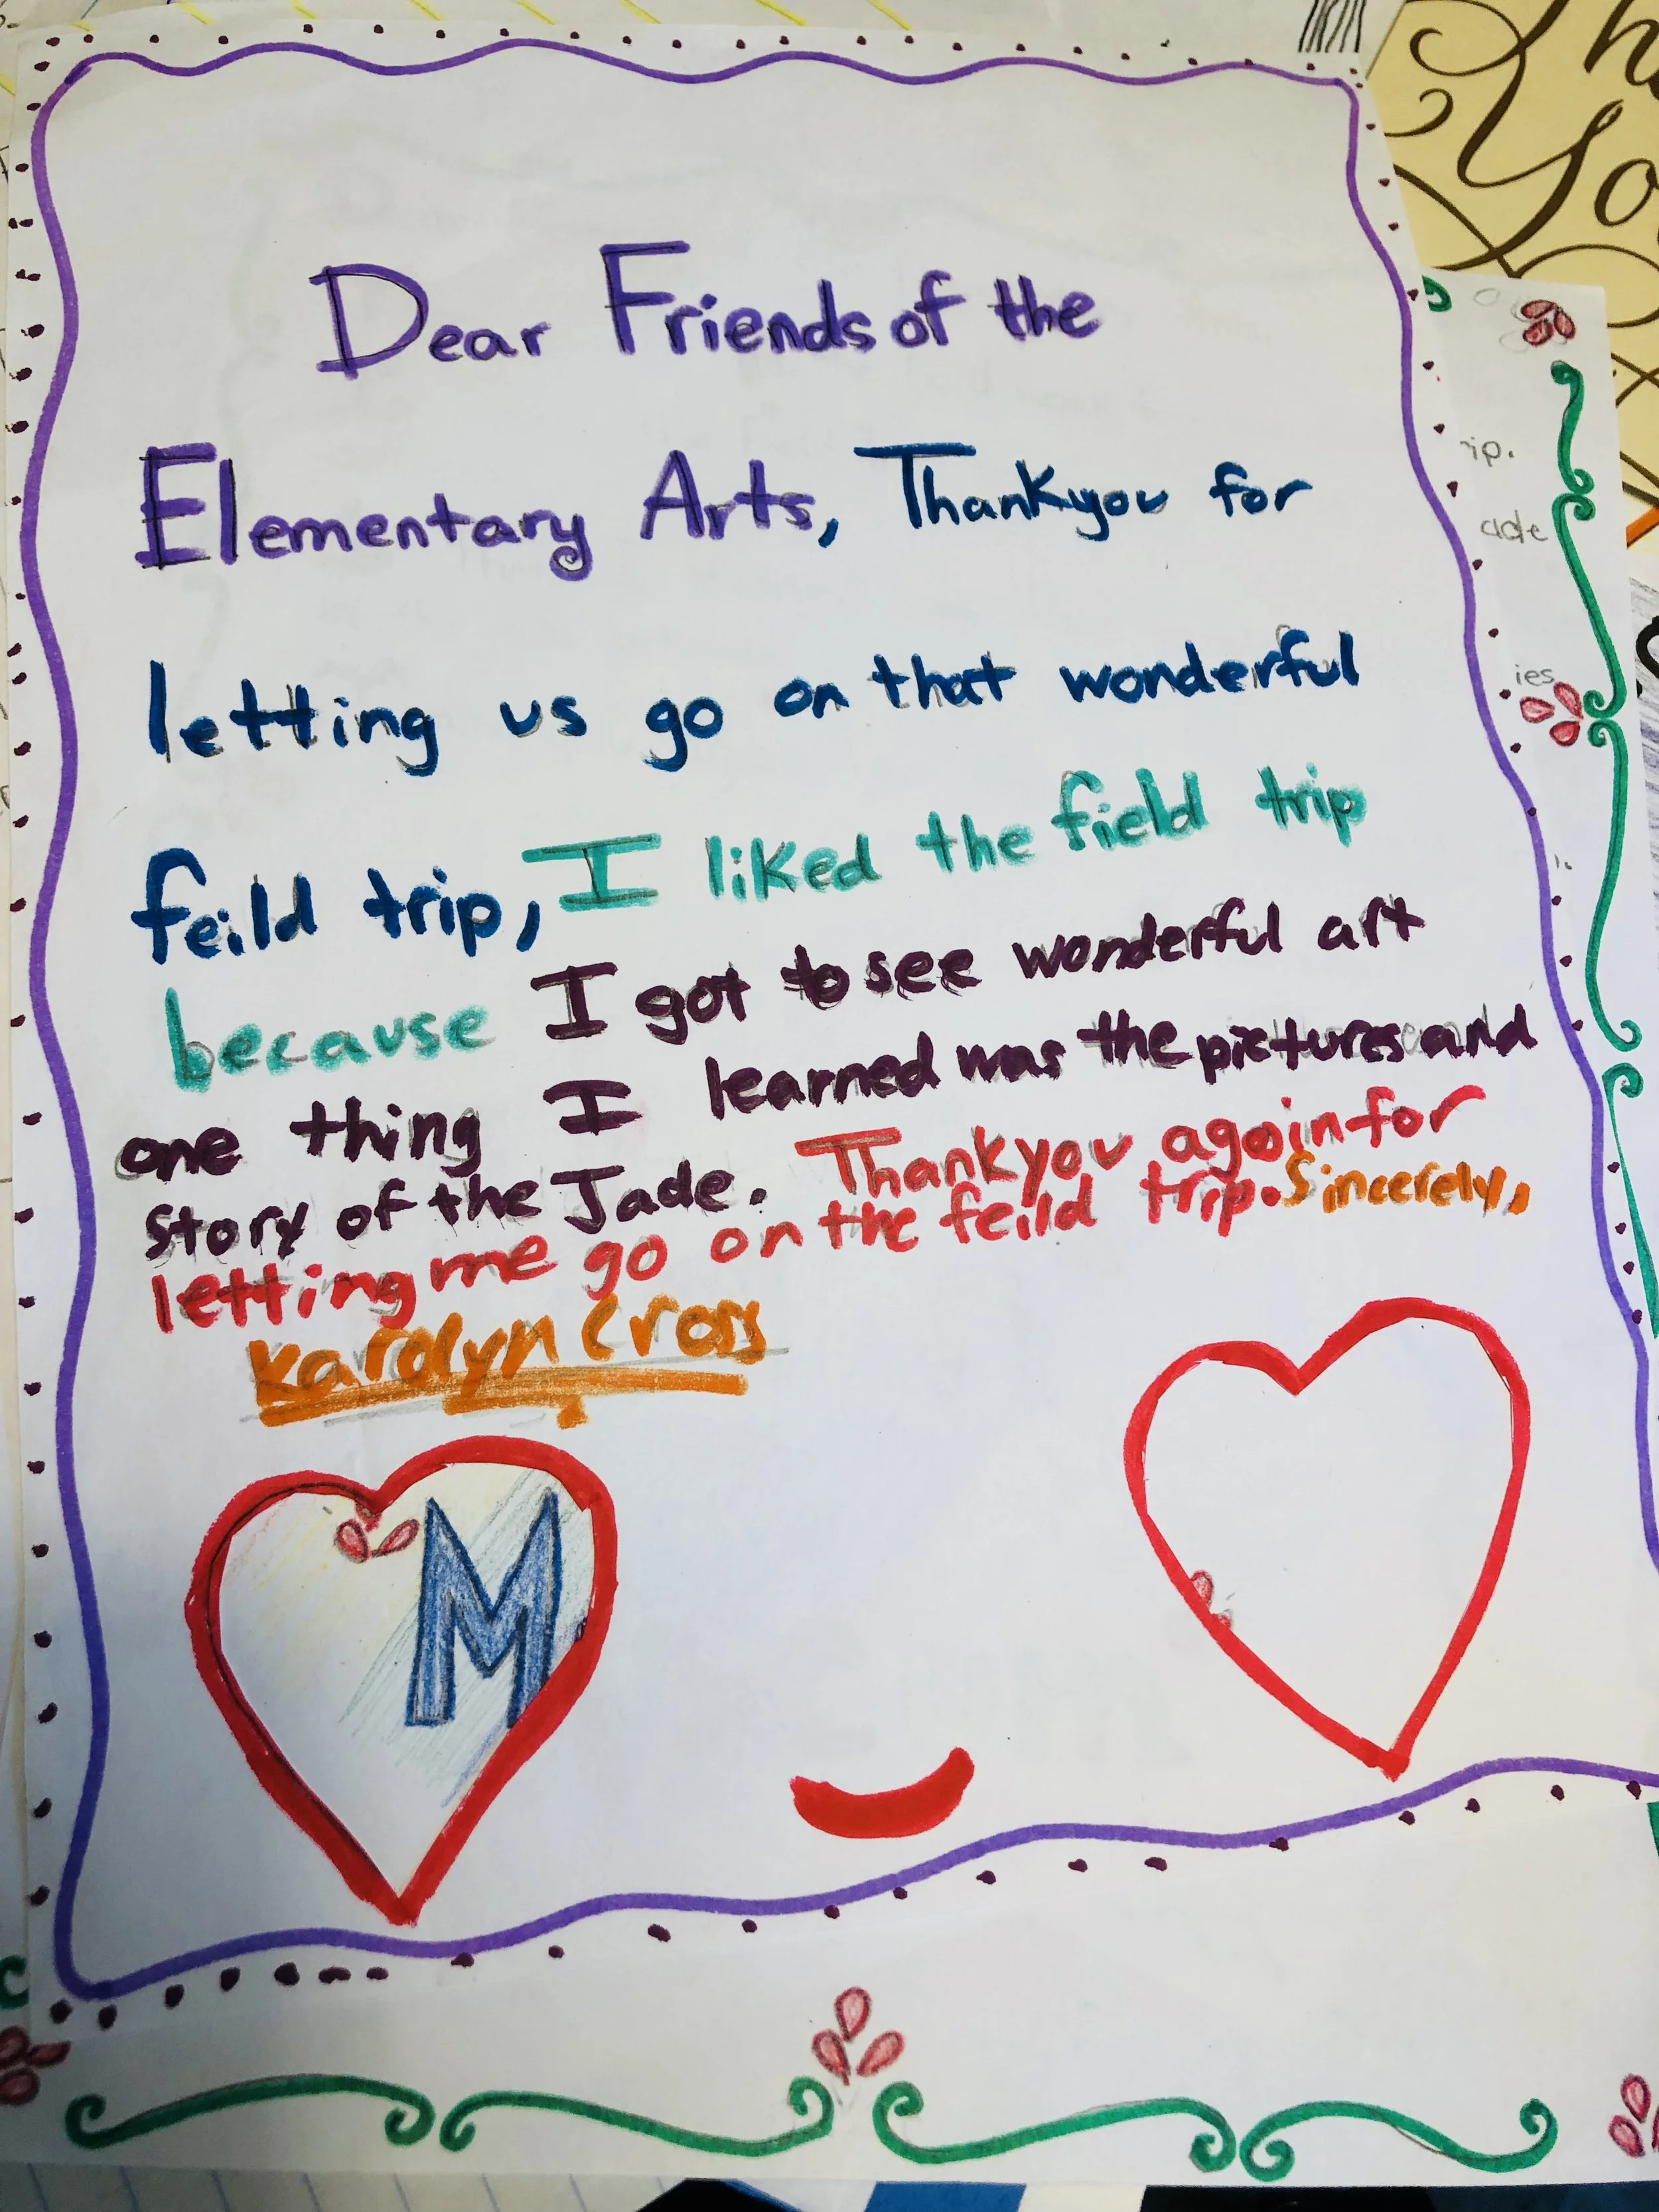 Dear Friends of the
Elementary Arts, Thankyou for
letting us go on that wonderful
feild trip, I liked the field trip
because I got to see wonderful art
one thing I learned was the pictures and
story of the Jade. Thankyou again for
letting me go on the feild trip. Sincerely,
Karolyn Cross
M
Yo
ip.
ade
ies